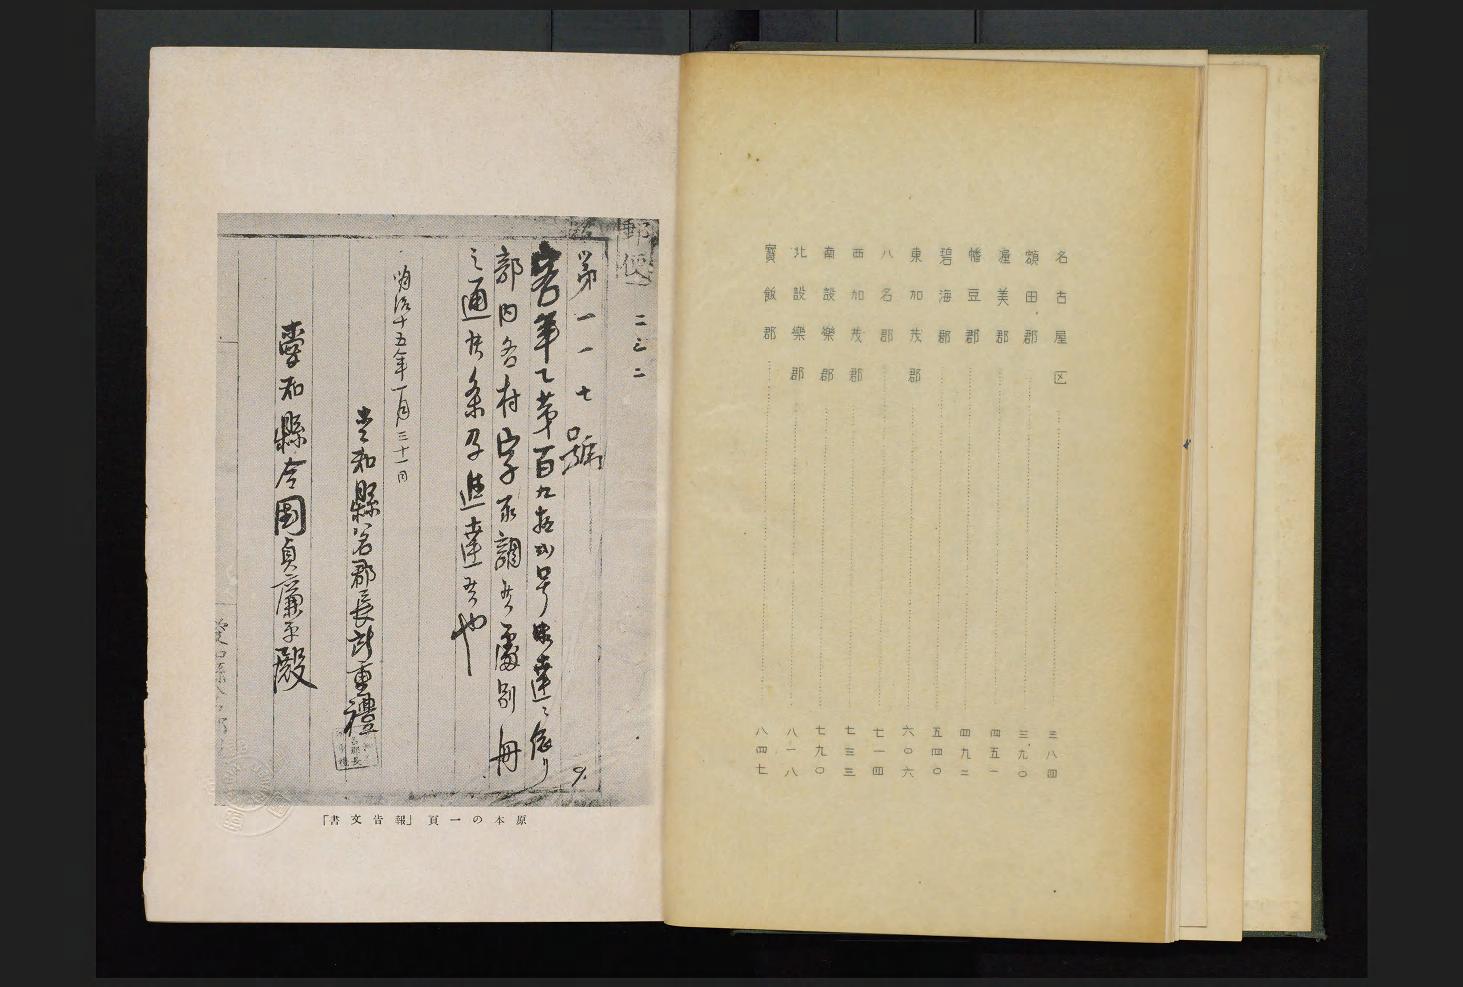 名古屋区 三八四
額田郡 三九〇
渥美郡 四五一
幡豆郡 四九二
碧海郡 五四〇
東加茂郡 六〇六
八名郡 七一四
西加茂郡 七三三
南設樂郡 七九〇
北設樂郡 八一八
寶飯郡 八四七
郵便
二三二
第一一七號
客年乙第百九拾
号御達ニ依り
部内各村字取調候處別冊
之通ニ候条及進達候也
明治十五年一月三十一日
愛知縣
郡長
重禮
愛知縣令國貞廉平殿
原本の一頁「報告文書」